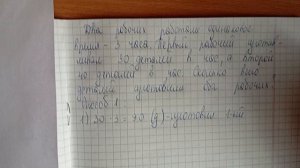 Два рабочих работали одинаковое
время - 3 часа. Первый рабочий изготав-
ливал 30 деталей в час, а второй
40 деталей в час. Сколько всего
деталей изготовили оба рабочих?
Способ 1.
1) 30·3=90 (д)-изготовил 1-ый